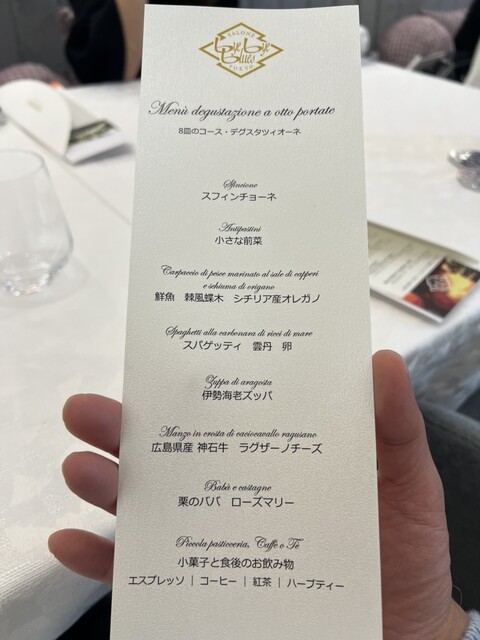 SALONE
Bye Bye
Blues
TOKYO
Menù degustazione a otto portate
8皿のコース・デグスタツィオーネ
Sfincione
スフィンチョーネ
Antipastini
小さな前菜
Carpaccio di pesce marinato al sale di capperi
e schiuma di origano
鮮魚 棘風蝶木 シチリア産オレガノ
Spaghetti alla carbonara di ricci di mare
スパゲッティ 雲丹 卵
Zuppa di aragosta
伊勢海老ズッパ
Manzo in crosta di caciocavallo ragusano
広島県産 神石牛 ラグザーノチーズ
Babà e castagne
栗のババ ローズマリー
Piccola pasticceria, Caffe o Tè
小菓子と食後のお飲み物
エスプレッソ | コーヒー | 紅茶 | ハーブティー